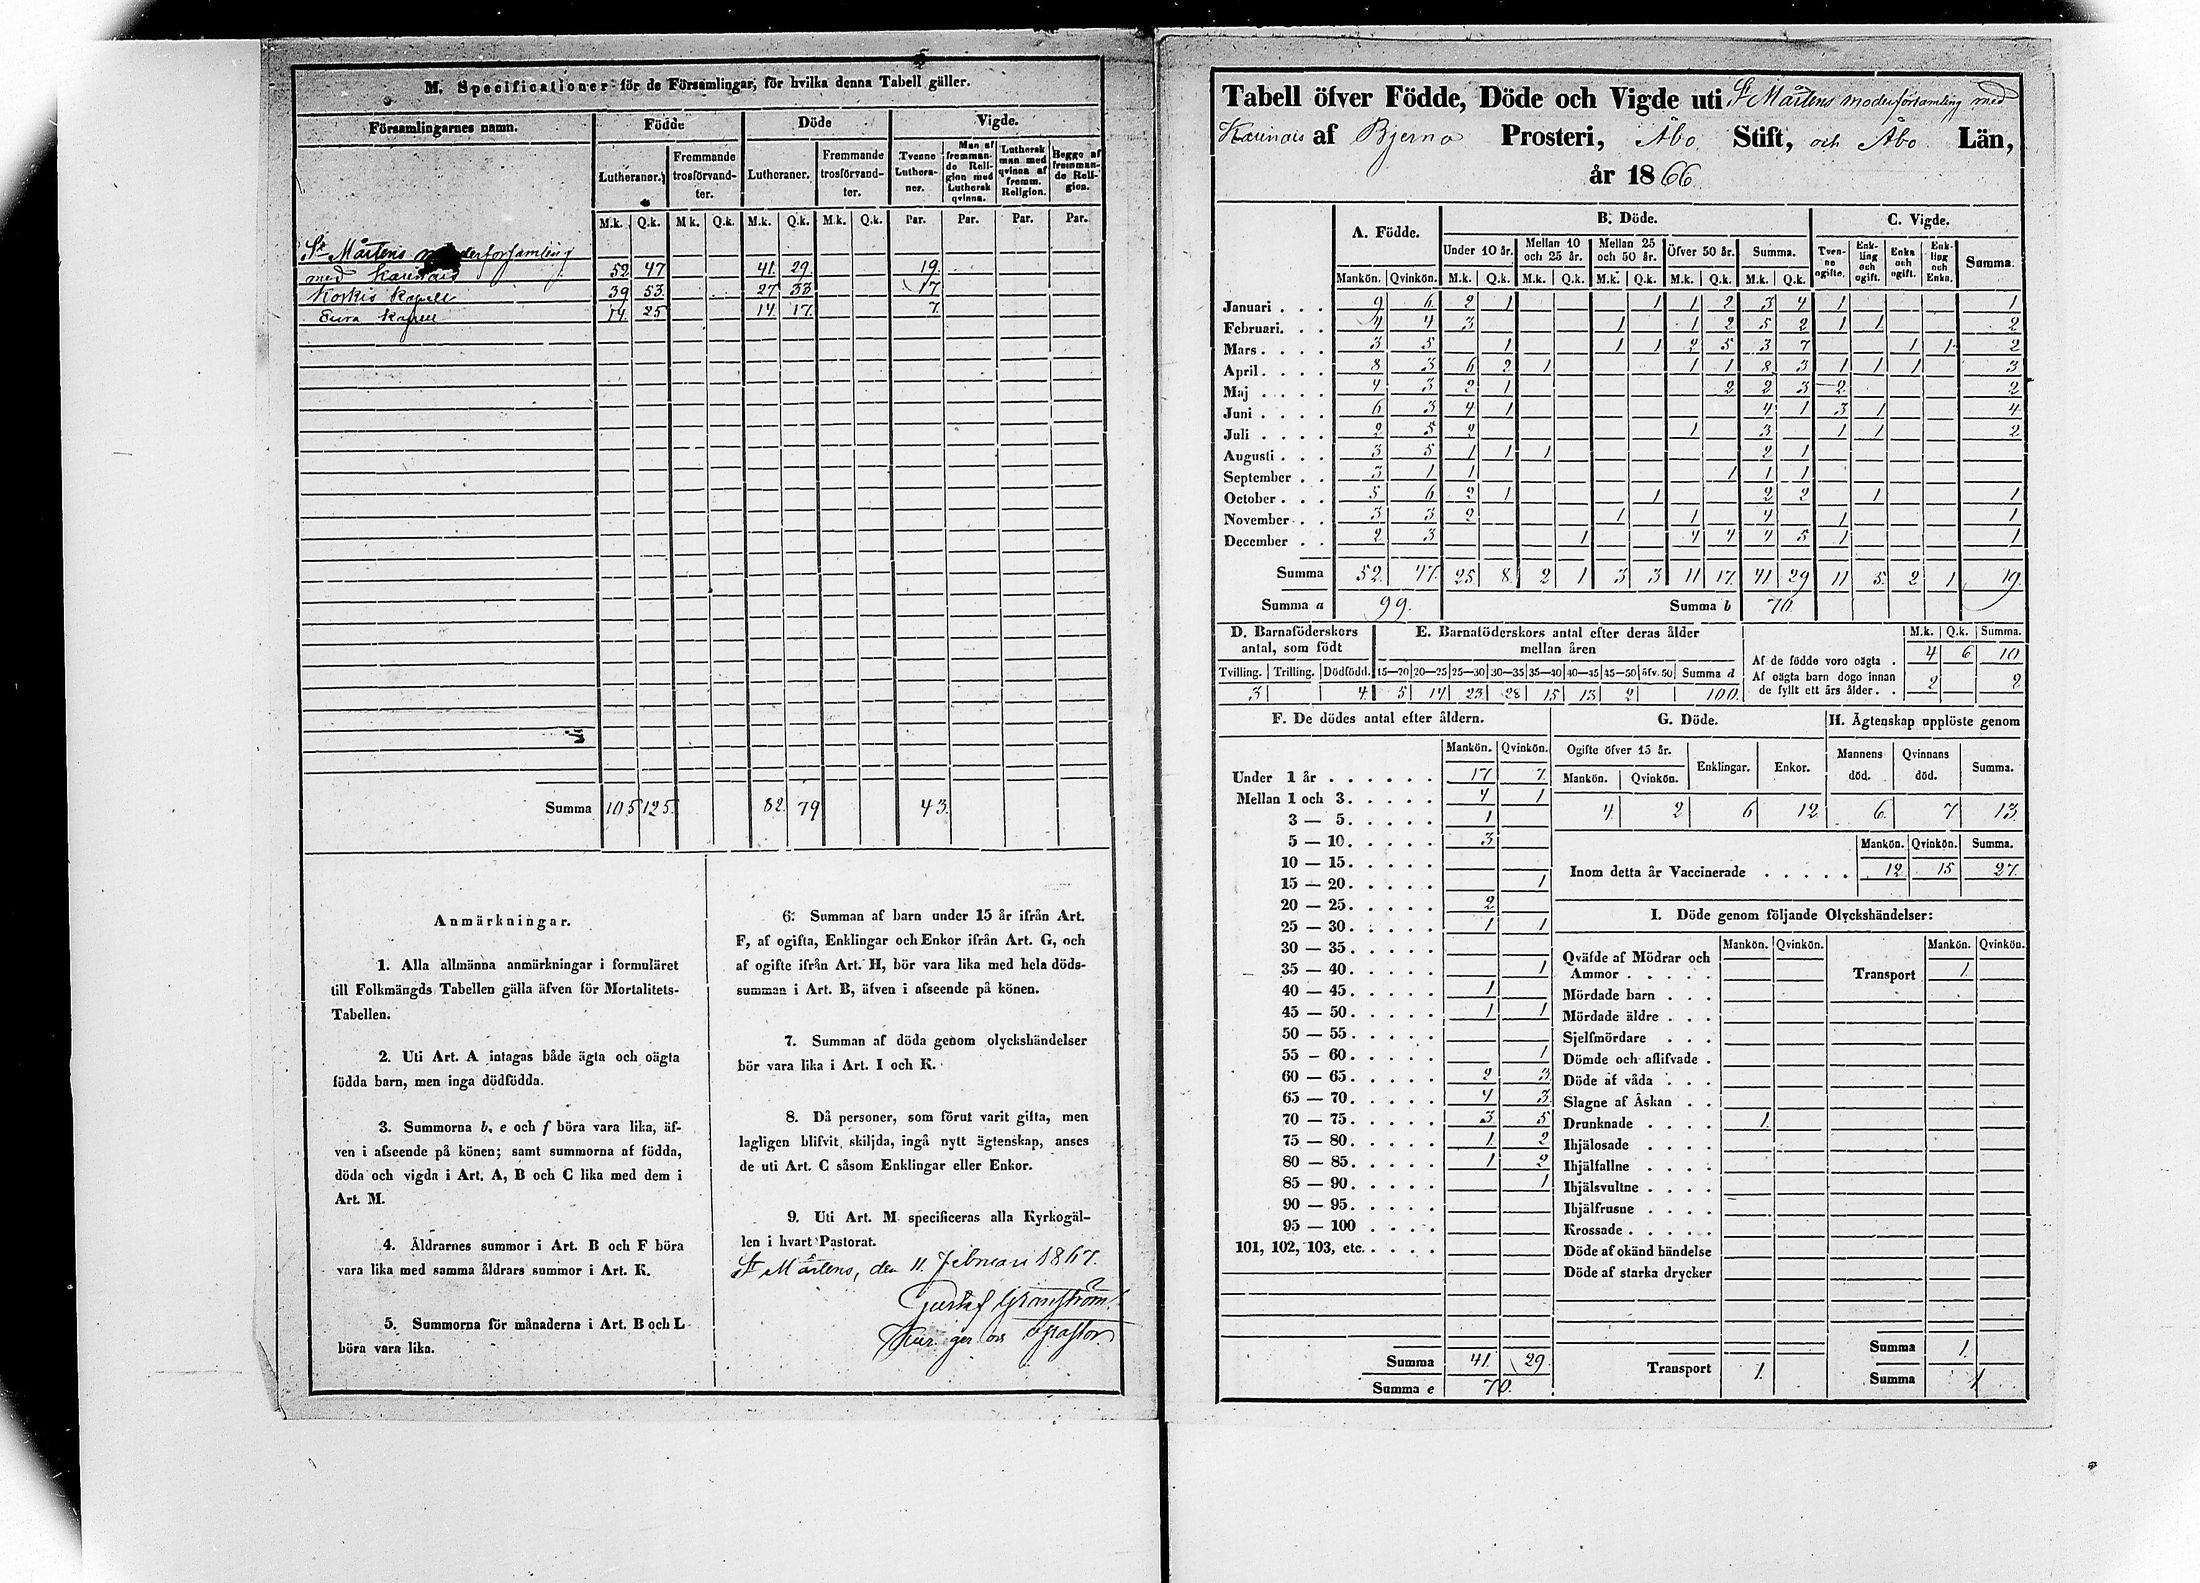 M. Specificationer för de Församlingar, för hvilka denna Tabell gäller.
Församlingarnes namn. Födde Döde Vigde.
Lutheraner. Fremmande trosförvandter. Lutheraner. Fremmande trosförvandter. Tvenne Lutheraner. Man af fremmande Religion med Luthersk qvinna. Luthersk man med qvinna af fremm. Religion. Begge af fremmande Religion.
M.k. Q.k. M.k. Q.k. M.k. Q.k. M.k. Q.k. Par. Par. Par. Par.
St Mårtens moderförsamling
med Karinais 52 47 41 29 19
Koskis Kapell 39 53 27 33 17
Eura Kapell 14 25 14 17 7
Summa 105 125 82 79 43
Anmärkningar.
1. Alla allmänna anmärkningar i formuläret
till Folkmängds Tabellen gälla äfven för Mortalitets-
Tabellen.
2. Uti Art. A intagas både ägta och oägta
födda barn, men inga dödfödda.
3. Summorna b, e och f böra vara lika, äf-
ven i afseende på könen; samt summorna af födda,
döda och vigda i Art. A, B och C lika med dem i
Art. M.
4. Åldrarnes summor i Art. B och F böra
vara lika med samma åldrars summor i Art. K.
5. Summorna för månaderna i Art. B och L
böra vara lika.
6. Summan af barn under 15 år ifrån Art.
F, af ogifta, Enklingar och Enkor ifrån Art. G, och
af ogifte ifrån Art. H, bör vara lika med hela döds-
summan i Art. B, äfven i afseende på könen.
7. Summan af döda genom olyckshändelser
bör vara lika i Art. I och K.
8. Då personer, som förut varit gifta, men
lagligen blifvit skiljda, ingå nytt ägtenskap, anses
de uti Art. C såsom Enklingar eller Enkor.
9. Uti Art. M specificeras alla Kyrkogäl-
len i hvart Pastorat.
St Mårtens, den 11 Februari 1867.
Gustaf Granström
Pastor
Tabell öfver Födde, Döde och Vigde uti St Mårtens moderförsamling med
Karinais af Bjerno Prosteri, Åbo Stift, och Åbo Län,
år 1866
A. Födde. B. Döde. C. Vigde.
Under 10 år. Mellan 10 och 25 år. Mellan 25 och 50 år. Öfver 50 år. Summa. Tvenne ogifte. Enkling och ogift. Enka och ogift. Enkling och Enka. Summa.
Mankön. Qvinkön. M.k. Q.k. M.k. Q.k. M.k. Q.k. M.k. Q.k. M.k. Q.k.
Januari 9 6 2 1 1 1 2 3 4 1 1
Februari 4 4 3 1 1 2 5 2 1 1 2
Mars 3 5 1 1 1 2 5 3 7 1 1 2
April 8 3 6 2 1 1 1 8 3 1 1 1 3
Maj 4 3 2 1 2 2 3 2 2
Juni 6 3 4 1 4 1 3 1 4
Juli 2 5 2 1 3 1 1 2
Augusti 3 5 1 1 1 2 1
September 3 1 1 1 1 1
October 5 6 2 1 1 2 2 1 1
November 3 3 2 1 1 4 1 1
December 2 3 1 4 4 4 5 1 1
Summa 52 47 25 8 2 1 3 3 11 17 41 29 11 5 2 1 19
Summa a 99. Summa b 70
D. Barnaföderskors antal, som födt E. Barnaföderskors antal efter deras ålder mellan åren
Tvilling. Trilling. Dödfödd. 15—20 20—25 25—30 30—35 35—40 40—45 45—50 öfv. 50 Summa d
3 4 5 14 23 28 15 13 2 100
M.k. Q.k. Summa.
Af de födde voro oägta 4 6 10
Af oägta barn dogo innan
de fyllt ett års ålder 2 2
F. De dödes antal efter åldern.
Mankön. Qvinkön.
Under 1 år 17 7
Mellan 1 och 3 4 1
3 — 5 1
5 — 10 3
10 — 15
15 — 20 1
20 — 25 2
25 — 30 1 1
30 — 35
35 — 40 1
40 — 45 1
45 — 50 1 1
50 — 55
55 — 60 1
60 — 65 2 3
65 — 70 4 3
70 — 75 3 5
75 — 80 1 2
80 — 85 1 2
85 — 90 1
90 — 95
95 — 100
101, 102, 103, etc.
Summa 41 29
Summa e 70.
G. Döde.
Ogifte öfver 15 år. Enklingar. Enkor.
Mankön. Qvinkön.
4 2 6 12
H. Ägtenskap upplöste genom
Mannens död. Qvinnans död. Summa.
6 7 13
Mankön. Qvinkön. Summa.
Inom detta år Vaccinerade 12 15 27
I. Döde genom följande Olyckshändelser:
Mankön. Qvinkön. Mankön. Qvinkön.
Qväfde af Mödrar och
Ammor Transport 1
Mördade barn
Mördade äldre
Sjelfmördare
Dömde och aflifvade
Döde af våda
Slagne af Åskan
Drunknade 1
Ihjälosade
Ihjälfallne
Ihjälsvultne
Ihjälfrusne
Krossade
Döde af okänd händelse
Döde af starka drycker
Summa 1
Transport 1 Summa 1